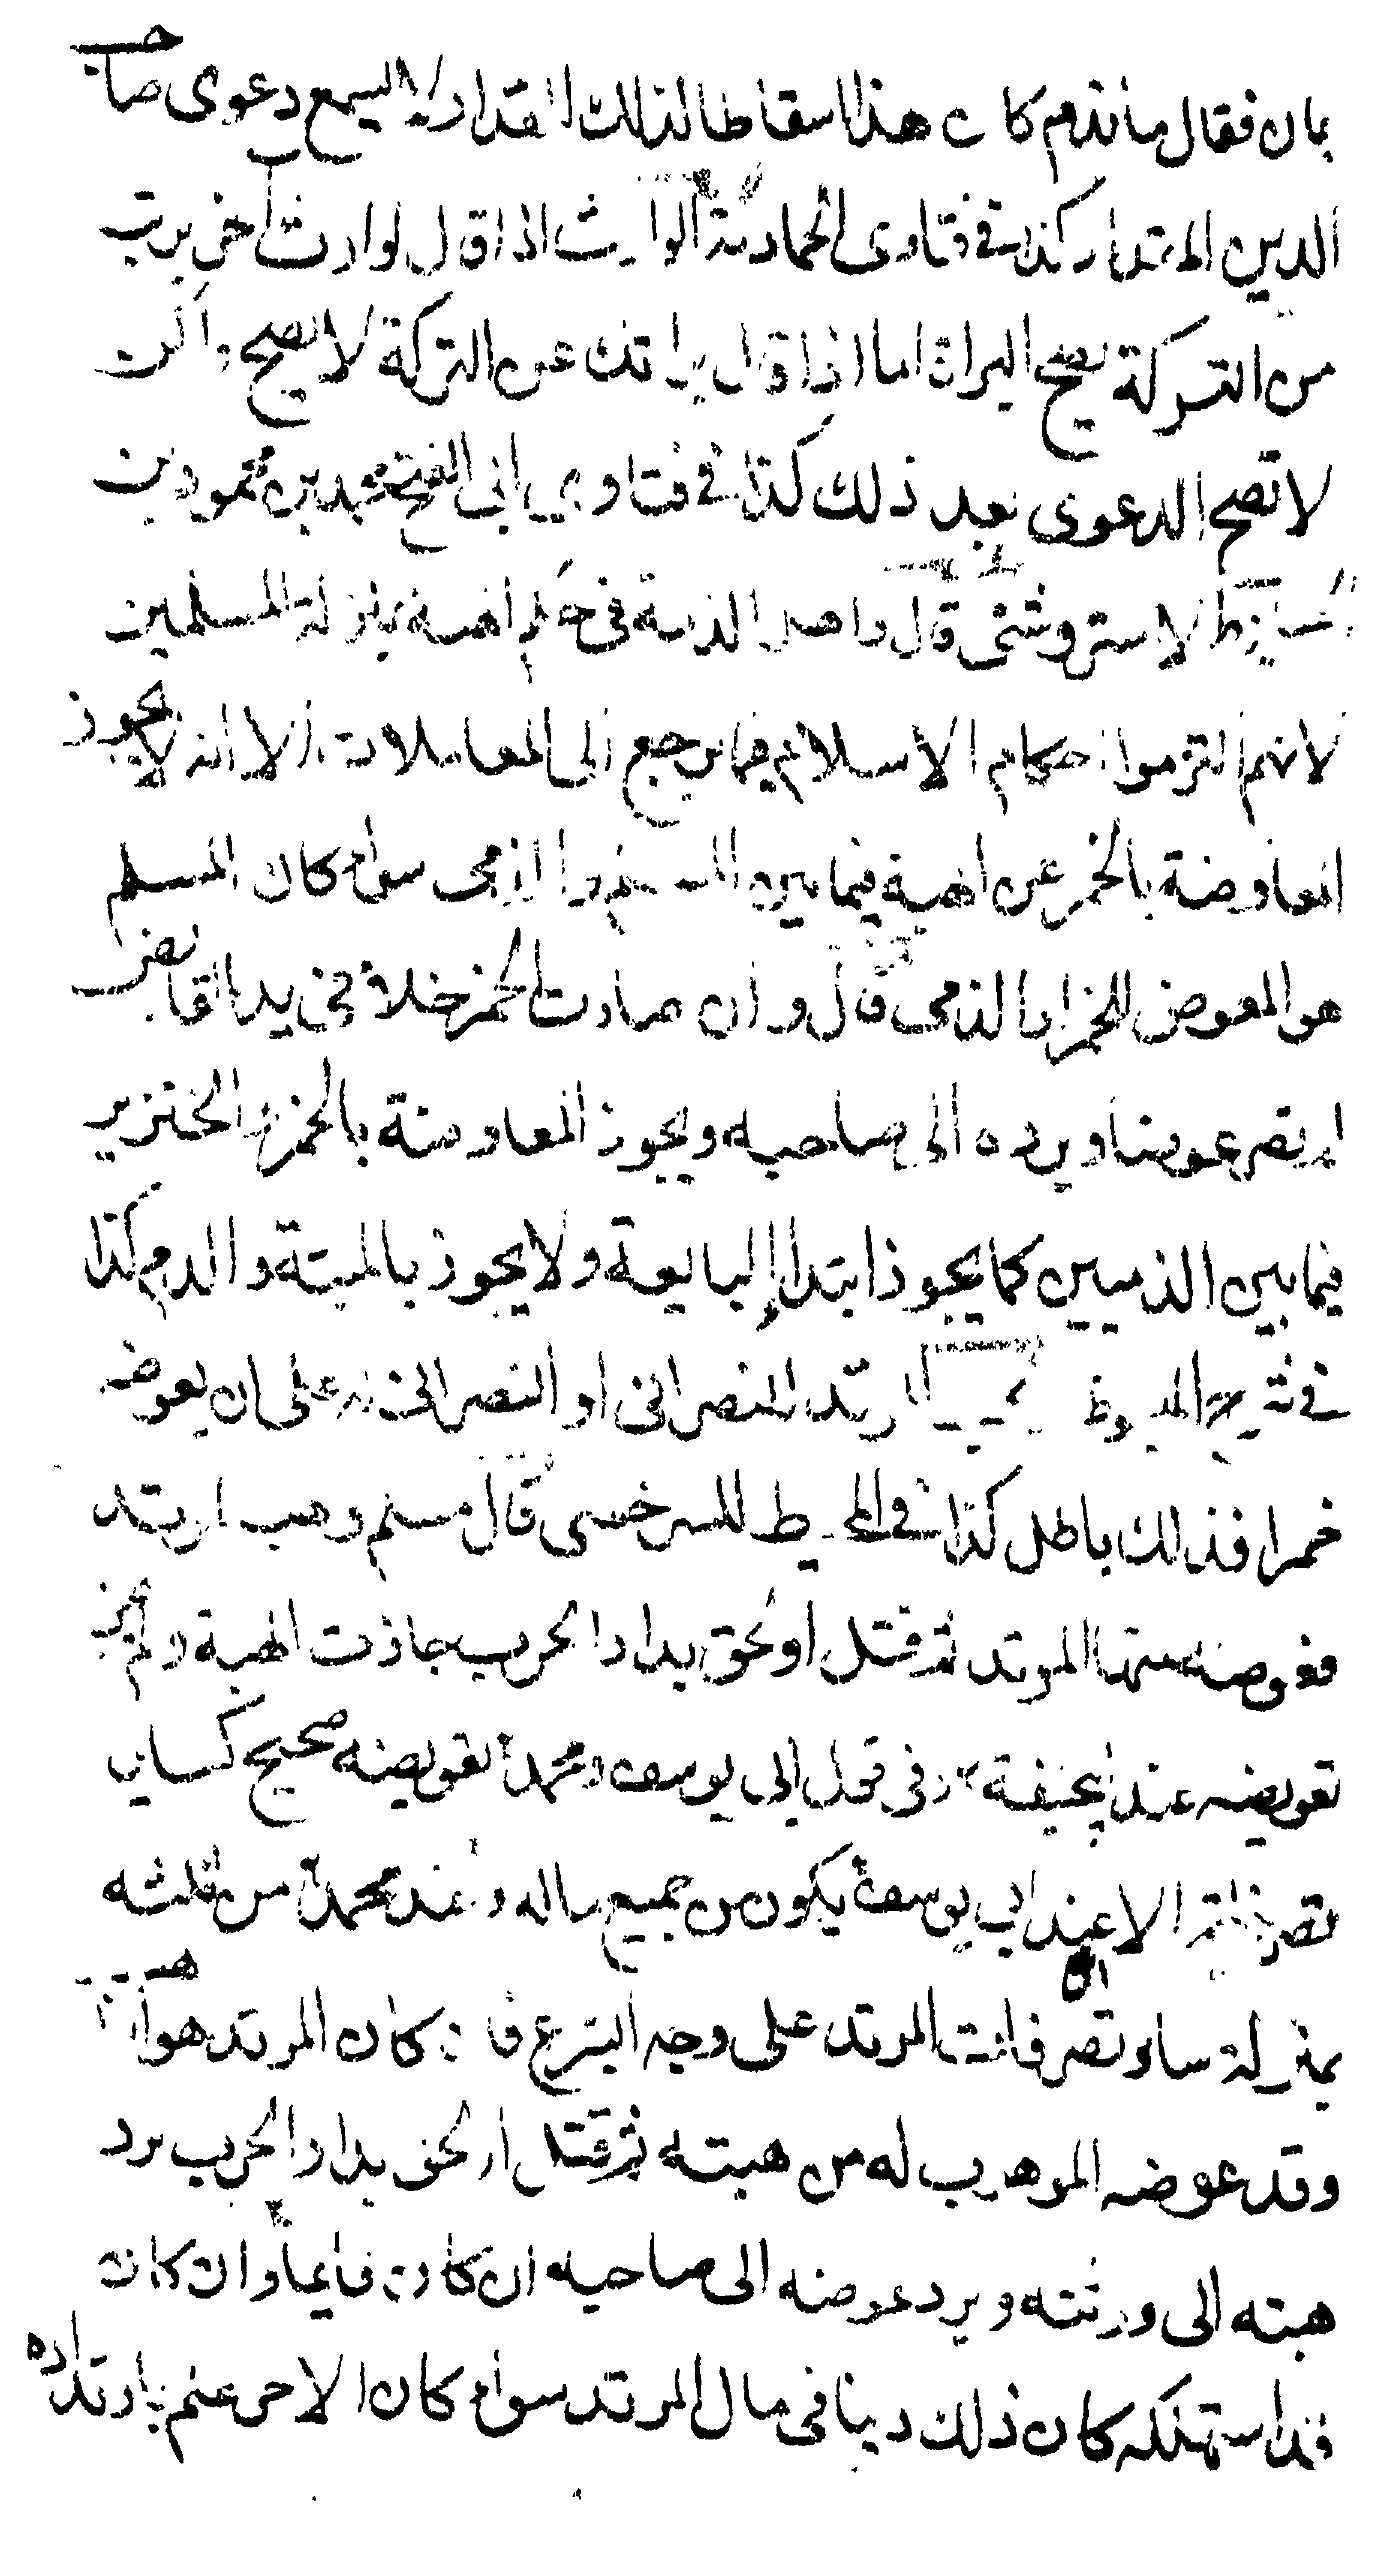 بان فقال ماندم كان هذا اسقاطا لذلك المقدار لا يسمع دعوى صاحب
الدين المقدار كذا في فتاوى الحمادية الوارث اذا قال لوارث آخر بريت
من التركة يصح البراة اما اذا قال براتك عن التركة لا يصح
لا تصح الدعوى بعد ذلك كذا في فتاوى ابي الفتح محمد بن محمود بن
الاستروشنى قال واهل الذمة في حكم الهبة بمنزلة المسلمين
لانهم التزموا احكام الاسلام فيما يرجع الى المعاملات الا انه لا يجوز
المعاوضة بالخمر عن الهبة فيما بين المسلم والذمى سواء كان المسلم
هو المعوض للخمر او الذمى قال وان صارت الخمر خلا في يد القابض
لم يصر عوضا ويرده الى صاحبه ويجوز المعاوضة بالخمر والخنزير
فيما بين الذميين كما يجوز ابتداء المبايعة ولا يجوز بالميتة والدم كذا
في المرتد للنصرانى او النصرانى له على ان يعوضه
خمرا فذلك باطل كذا في المحيط للسرخسى قال مسلم وهب لمرتد
فعوضه منها المرتد ثم قتل او لحق بدار الحرب جازت الهبة ولم يجز
تعويضه عند ابيحنيفة وفى قول ابى يوسف ومحمد تعويضه صحيح كساير
تصرفاته الا عند ابي يوسف يكون من جميع ماله وعند محمد من ثلثه
بمنزلة سائر تصرفات المرتد على وجه التبرع فان كان المرتد هو الواهب
وقد عوضه الموهوب له من هبته ثم قتل او لحق بدار الحرب يرد
هبته الى ورثته ويرد عوضه الى صاحبه ان كان قايما وان كان
قد استهلكه كان ذلك دينا في مال المرتد سواء كان الاخر علم بارتداده